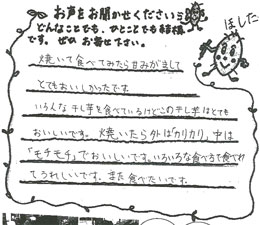 お声をお聞かせください
どんなことでも、ひとことでも結構
です。ぜひ お寄せ下さい。
ほした
焼いて食べてみたら甘みがまして
とてもおいしかったです
いろんな干し芋を食べているけどこの干し芋はとても
おいしいです。焼いたら外は「カリカリ」中は
「モチモチ」でおいしいです。いろいろな食べ方で食べれ
てうれしいです。また食べたいです。